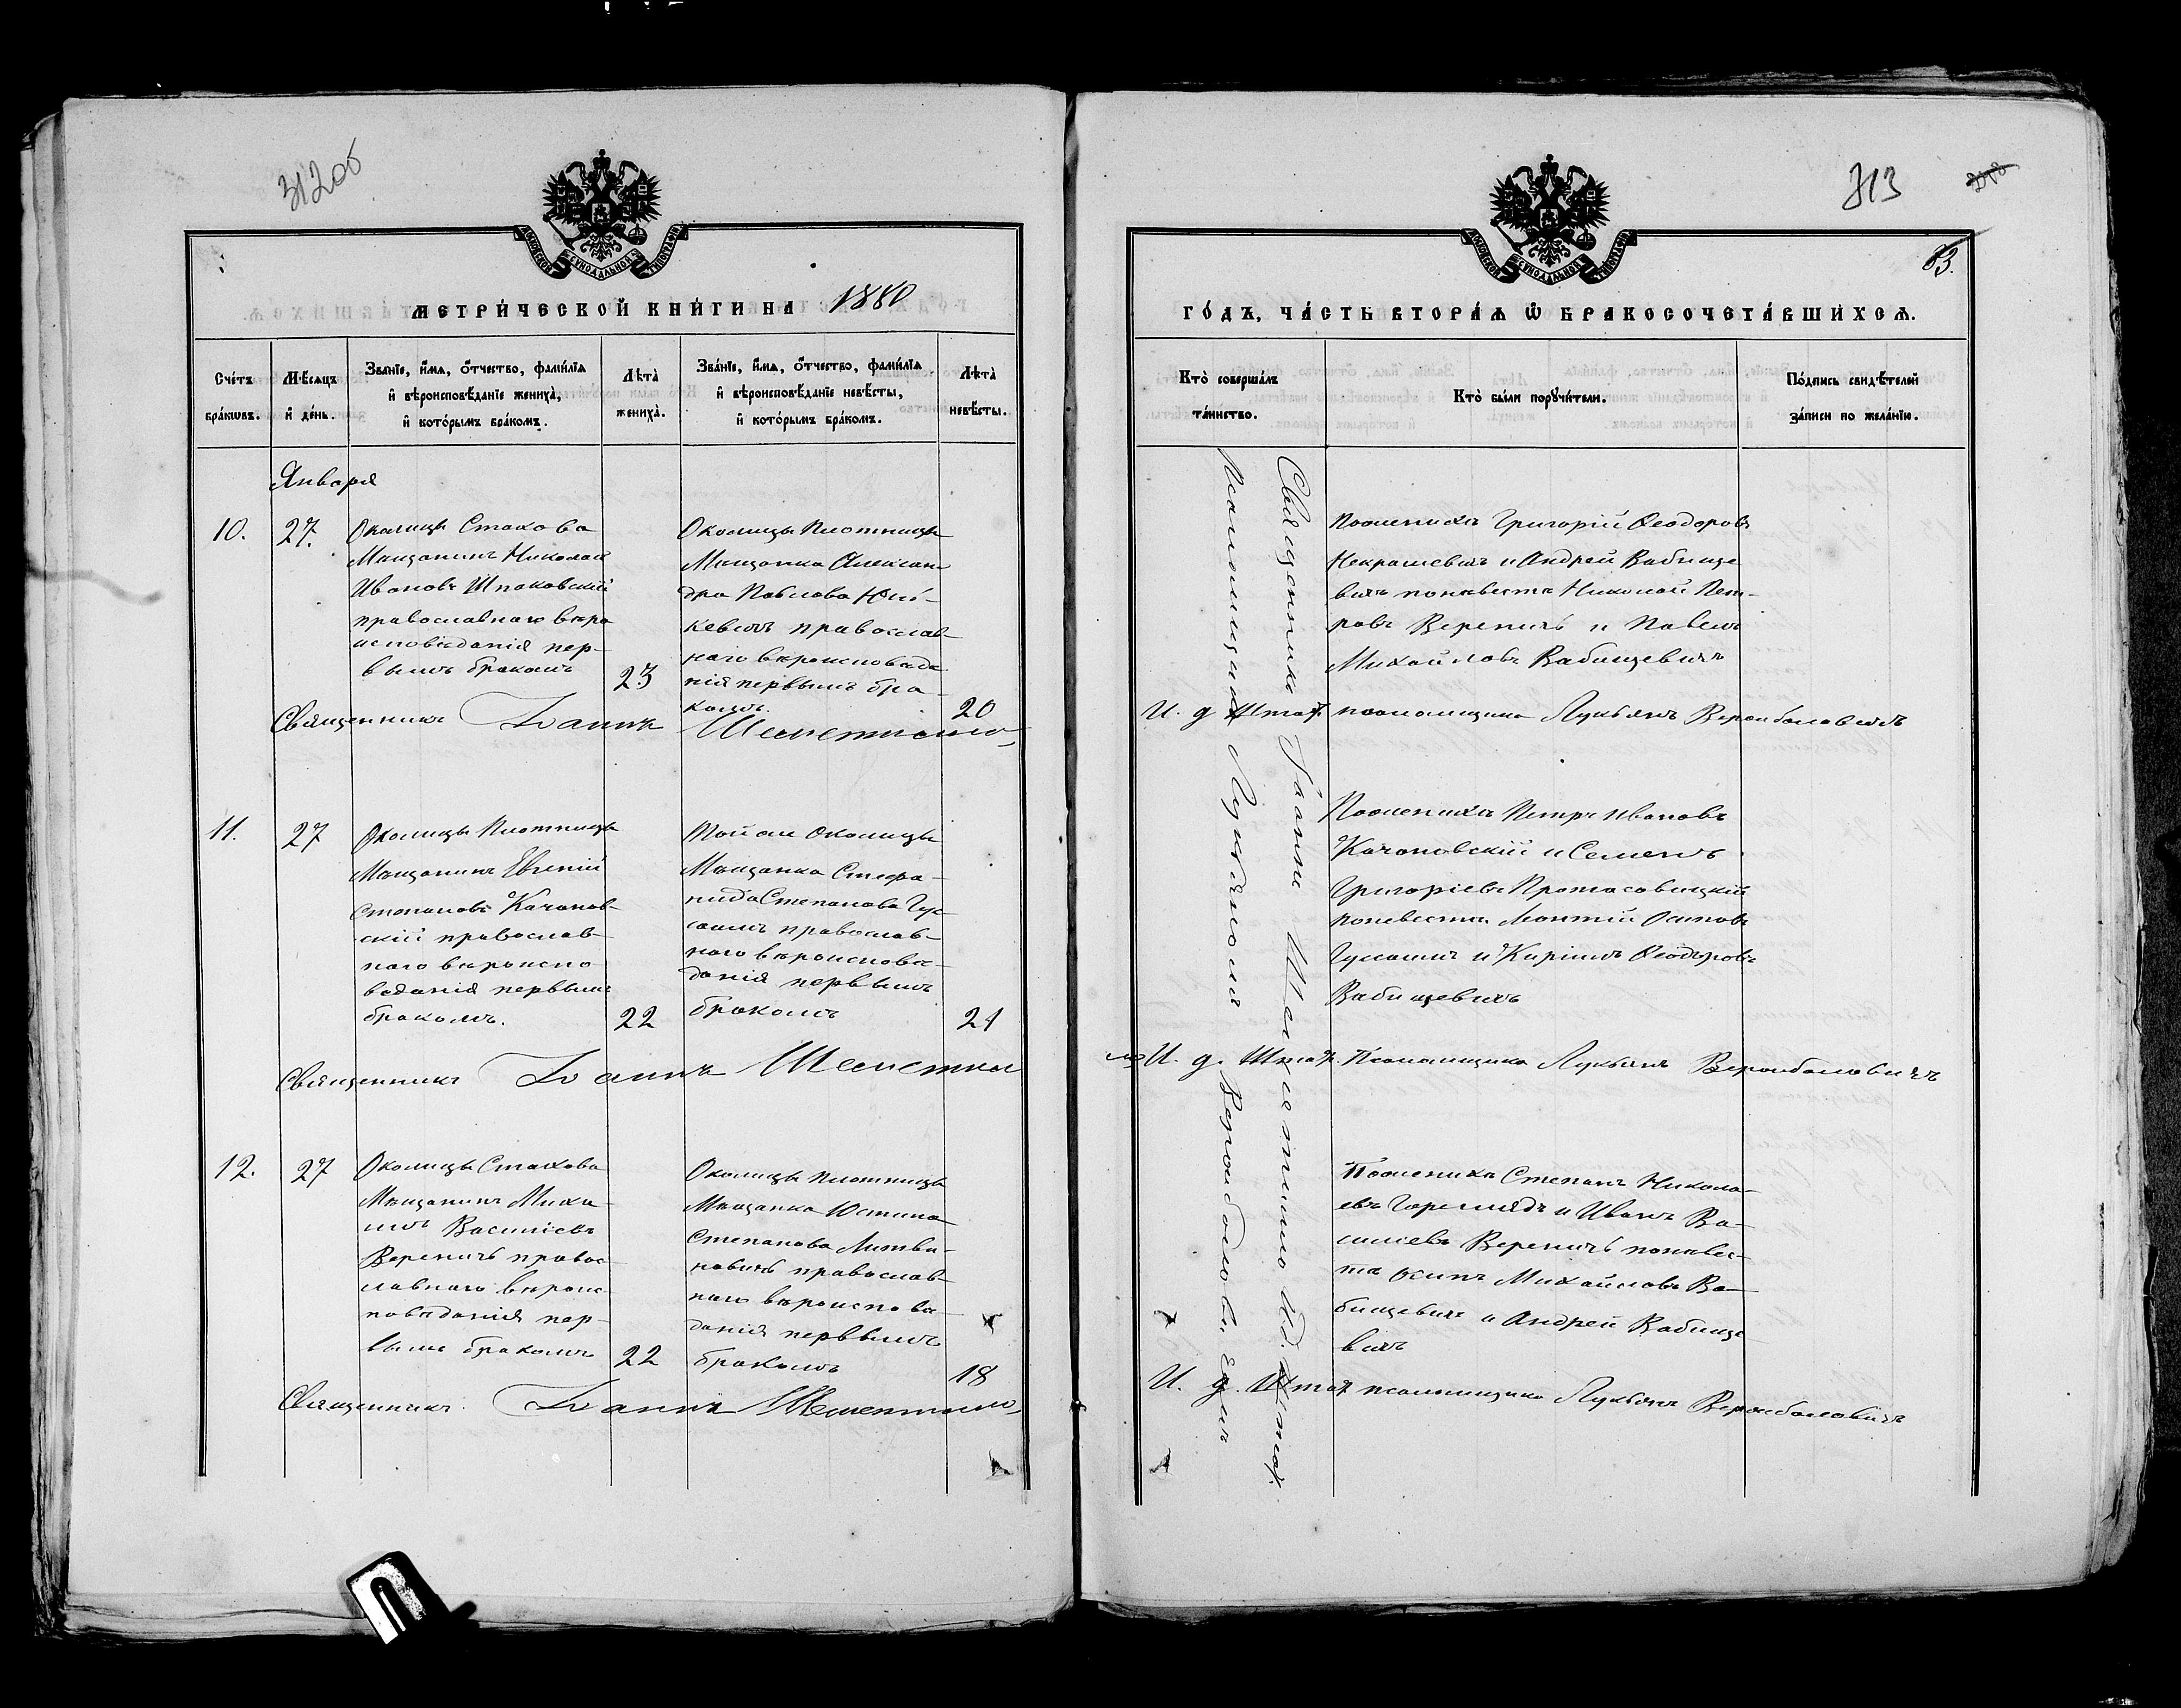 312об
МЕТРИ́ЧЕСКОЙ КНИ́ГИ НА 1880
Сче́тъ бра́кѡвъ.
Мѣ́сяцъ и҆ де́нь.
Зва́нїе, и҆́мѧ, ѻ҆́тчество, фами́лїѧ
и҆ вѣроисповѣ́данїе жениха̀,
и҆ кото́рымъ бра́комъ.
Лѣта̀ жениха̀.
Зва́нїе, и҆́мѧ, ѻ҆́тчество, фами́лїѧ
и҆ вѣроисповѣ́данїе невѣ́сты,
и҆ кото́рымъ бра́комъ.
Лѣта̀ невѣ́сты.
Января
10.
27.
Околицы Стахова
Мѣщанинъ Николай
Ивановъ Шпаковскій
православнаго вѣро
исповѣданія пер-
вымъ бракомъ
23
Околицы Плотницы
Мѣщанка Алексан
дра Павлова
кевичъ православ-
наго вѣроисповѣда
нія первымъ бра-
комъ.
20
Священникъ Іоаннъ
11.
27
Околицы Плотницы
Мѣщанинъ Евгеній
Степановъ Качанов-
скій православ-
наго вѣроиспо
вѣданія первымъ
бракомъ.
22
Той же Околицы
Мѣщанка Стефа-
нида Степанова Гус-
самъ православ-
наго вѣроисповѣ-
данія первымъ
бракомъ
21
Священникъ Іоаннъ
12.
27
Околицы Стахова
Мѣщанинъ Миха
илъ Василіевъ
Вереничъ правос-
лавнаго вѣроис
повѣданія пер-
вымъ бракомъ
22
Околицы Плотницы
Мѣщанка Юстина
Степанова Литви-
новичъ православ-
наго вѣроисповѣ-
данія первымъ
бракомъ
18
Священникъ Іоаннъ
313
83.
ГО́ДЪ, ЧА́СТЬ ВТОРА́Ѧ Ѽ БРАКОСОЧЕТА́ВШИХСѦ.
Кто̀ соверша́лъ та́инство.
Кто̀ бы́ли порꙋчи́тели.
По́дпись свидѣ́телей
за́писи по жела́нїю.
Священникъ Іоаннъ
Псаломщикъ Лукьянъ
По женихѣ Григорій Ѳеодоровъ
Некрашевичъ и Андрей Вабище
вичъ по невѣстѣ Николай Пет-
ровъ Вереничъ и Павелъ
Михайловъ Вабищевичъ
И. д. Штат. псаломщика Лукьянъ
По женихѣ Петръ Ивановъ
Качановскій и Семенъ
Григоріевъ Протасовицкій
по невѣстѣ Осиповъ
и Кирилъ Ѳеодоровъ
Вабищевичъ
И. д. Штат. Псаломщика Лукьянъ
По женихѣ Степанъ Никола-
евъ и Иванъ Ва-
силіевъ Вереничъ по невѣс-
тѣ Осипъ Михайловъ Ва-
бищевичъ и Андрей Вабище
вичъ
И. д. Штат псаломщика Лукьянъ